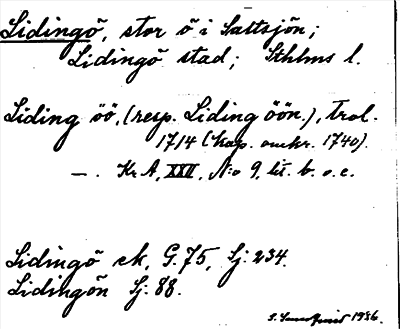 Lidingö, stor ö i Saltsjön;
Lidingö stad; Sthlms l.
Liding öö, (resp. Liding öön.), trol.
1714 (kop. omkr. 1740).
—. Kr. A, XXII, N:o 9, lit. b. o. c.
Lidingö ek, G. 75, Sj: 234.
Lidingön Sj: 88.
1936.